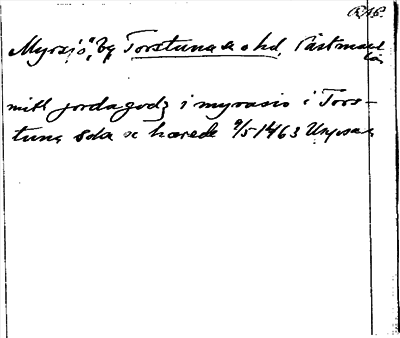 RA16.
Myrsjö, by Torstuna s o hd, Västmanl.
län
mitt jordagodz i myrasio i Tors-
tuna sokn oc hærede 9/5 1463 Uppsala